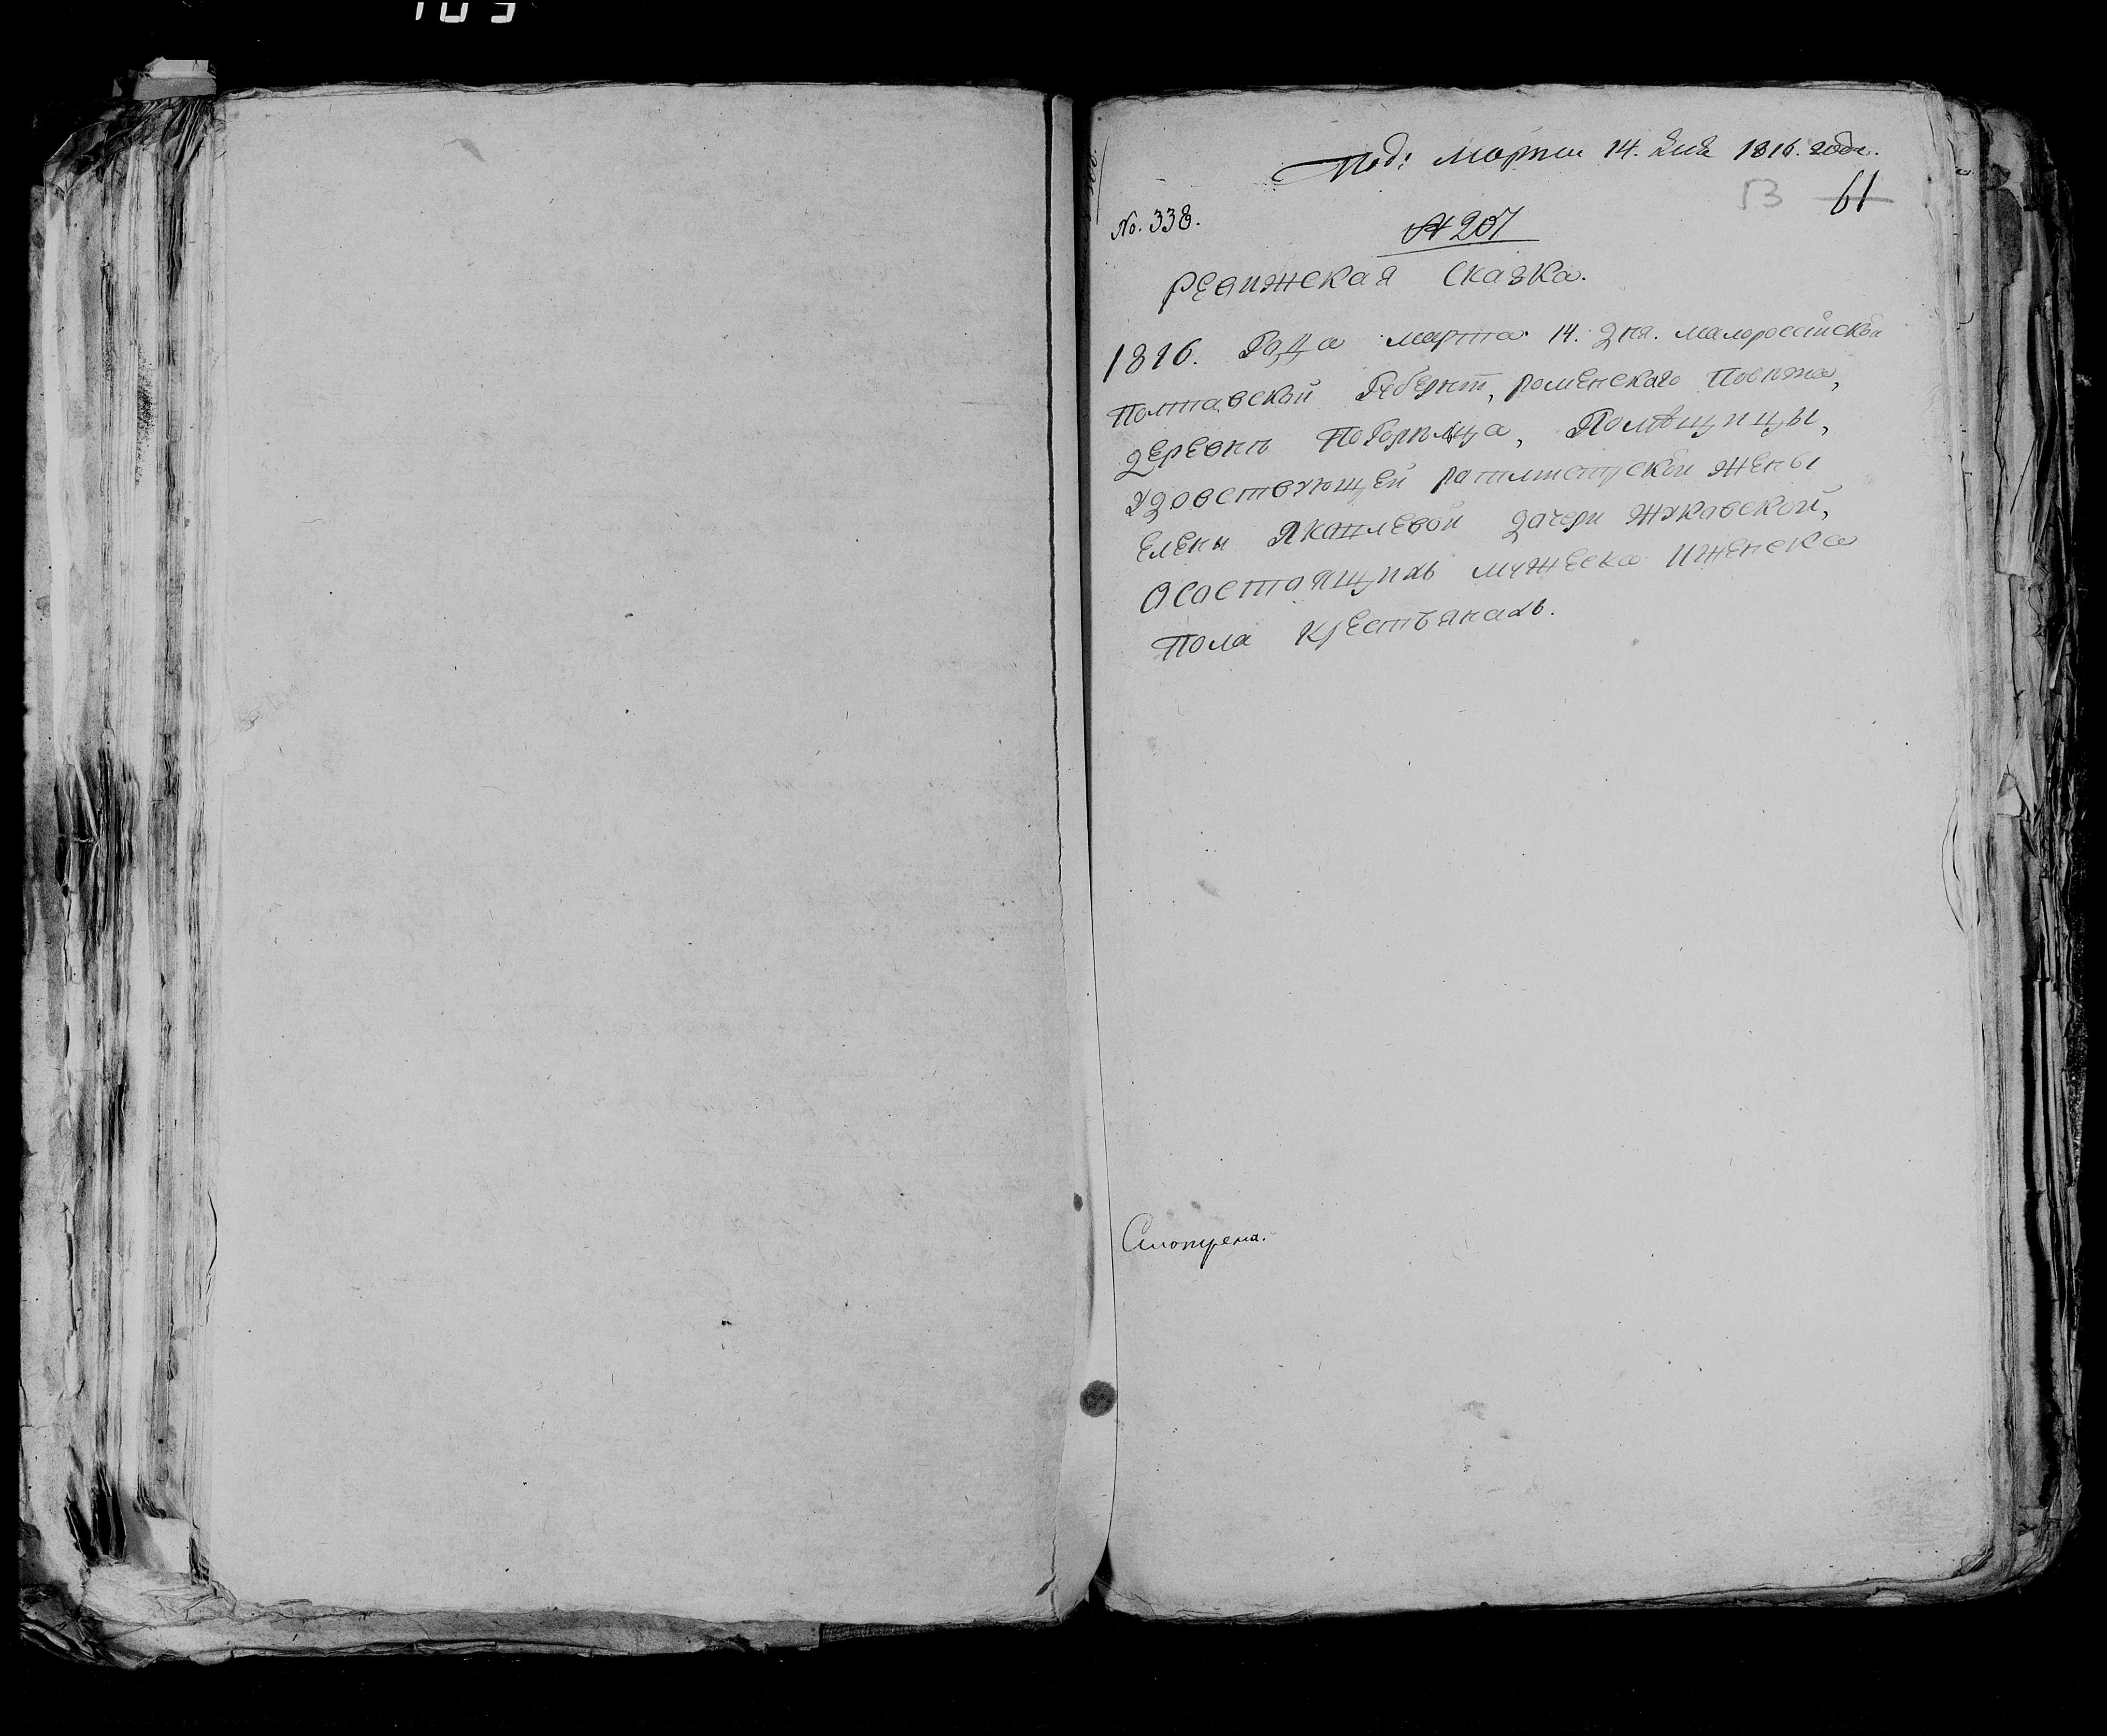 Под: Марта 14. дня 1816. года.
53 61
No. 338.
№ 207
Ревижская Сказка.
1816. Года марта 14. дня. малороссiйской
Полтавской Губернiи, роменскаго Повѣта,
деревнѣ Погорѣлца, Помѣщицы,
Удовствующей ратмистрской жены
Елены Яковлевой дочери Жуковской,
О Состоящихъ мужеска И женска
Пола Крестьянахъ.
Смотрена.